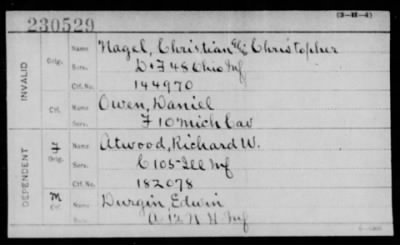 230529
(3-H-4)
INVALID
Orig.
Name Nagel, Christian Christopher
Serv. D & F 48 Ohio Inf
Ctf. No. 144970
Ctf.
Name Owen, Daniel
Serv. F 10 Mich Cav
DEPENDENT
F
Orig.
Name Atwood, Richard W.
Serv. C 105 Ill Inf
Ctf. No. 182078
M
Ctf.
Name Durgin, Edwin
Serv. 12 N H Inf